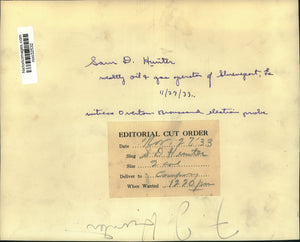 Sam D. Hunter
wealthy oil & gas operator of Shreveport, La
11/27/33
witness Overton-Broussard election probe
EDITORIAL CUT ORDER
Date Nov. 27, 33
Slug S D Hunter
Size 2 col
Deliver to
When Wanted 12:20 pm